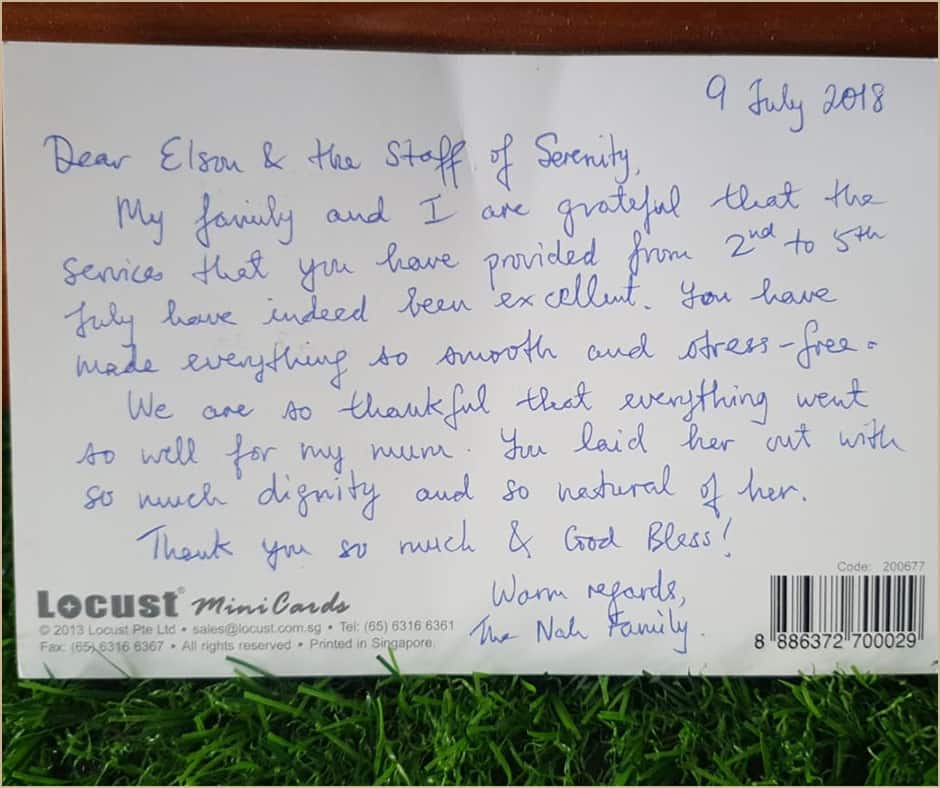 9 July 2018
Dear Elson & the Staff of Serenity,
My family and I are grateful that the
services that you have provided from 2nd to 5th
July have indeed been excellent. You have
made everything so smooth and stress-free.
We are so thankful that everything went
so well for my mum. You laid her out with
so much dignity and so natural of her.
Thank you so much & God Bless!
Warm regards,
The Nah Family.
Locust® MiniCards
© 2013 Locust Pte Ltd • sales@locust.com.sg • Tel: (65) 6316 6361
Fax: (65) 6316 6367 • All rights reserved • Printed in Singapore.
Code: 200677
8 886372 700029